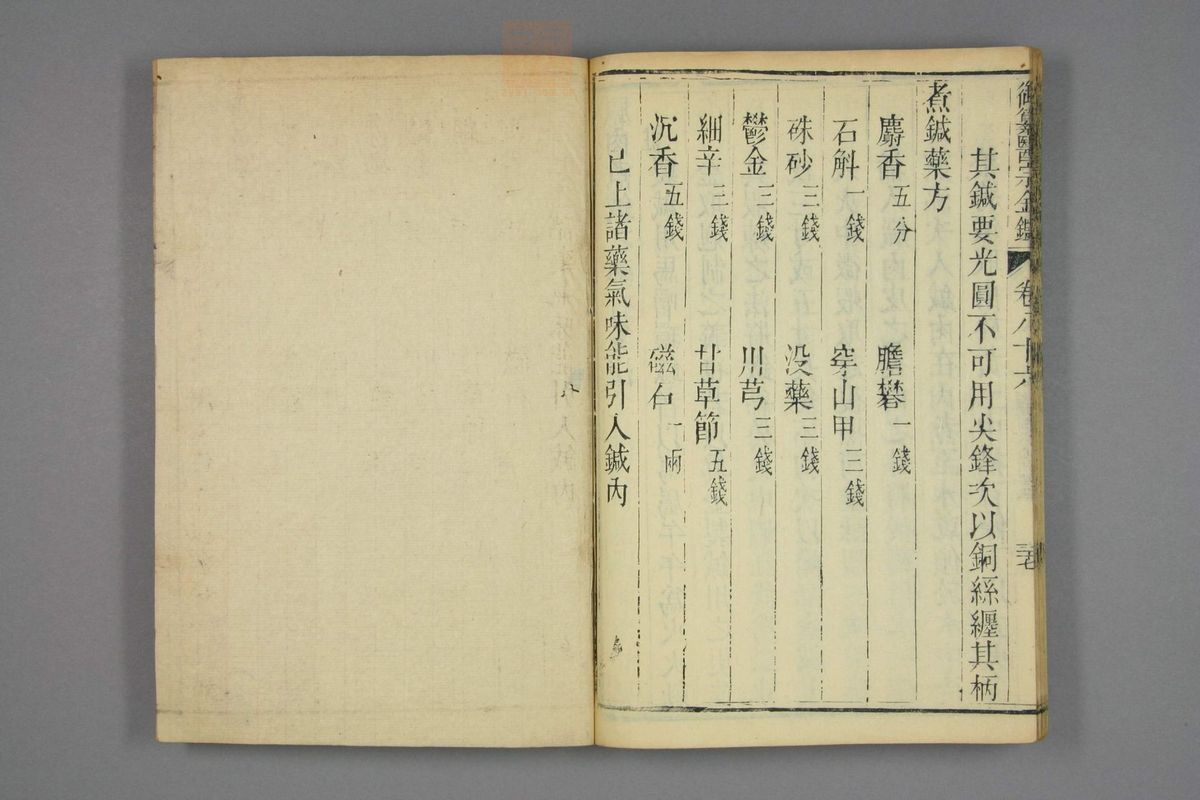 御纂醫宗金鑑 卷八十六
其鍼要光圓不可用尖鋒次以銅絲纏其柄
煮鍼藥方
麝香五分 膽礬一錢
石斛一錢 穿山甲三錢
硃砂三錢 没藥三錢
鬱金三錢 川芎三錢
細辛三錢 甘草節五錢
沉香五錢 磁石一兩
已上諸藥氣味能引入鍼內